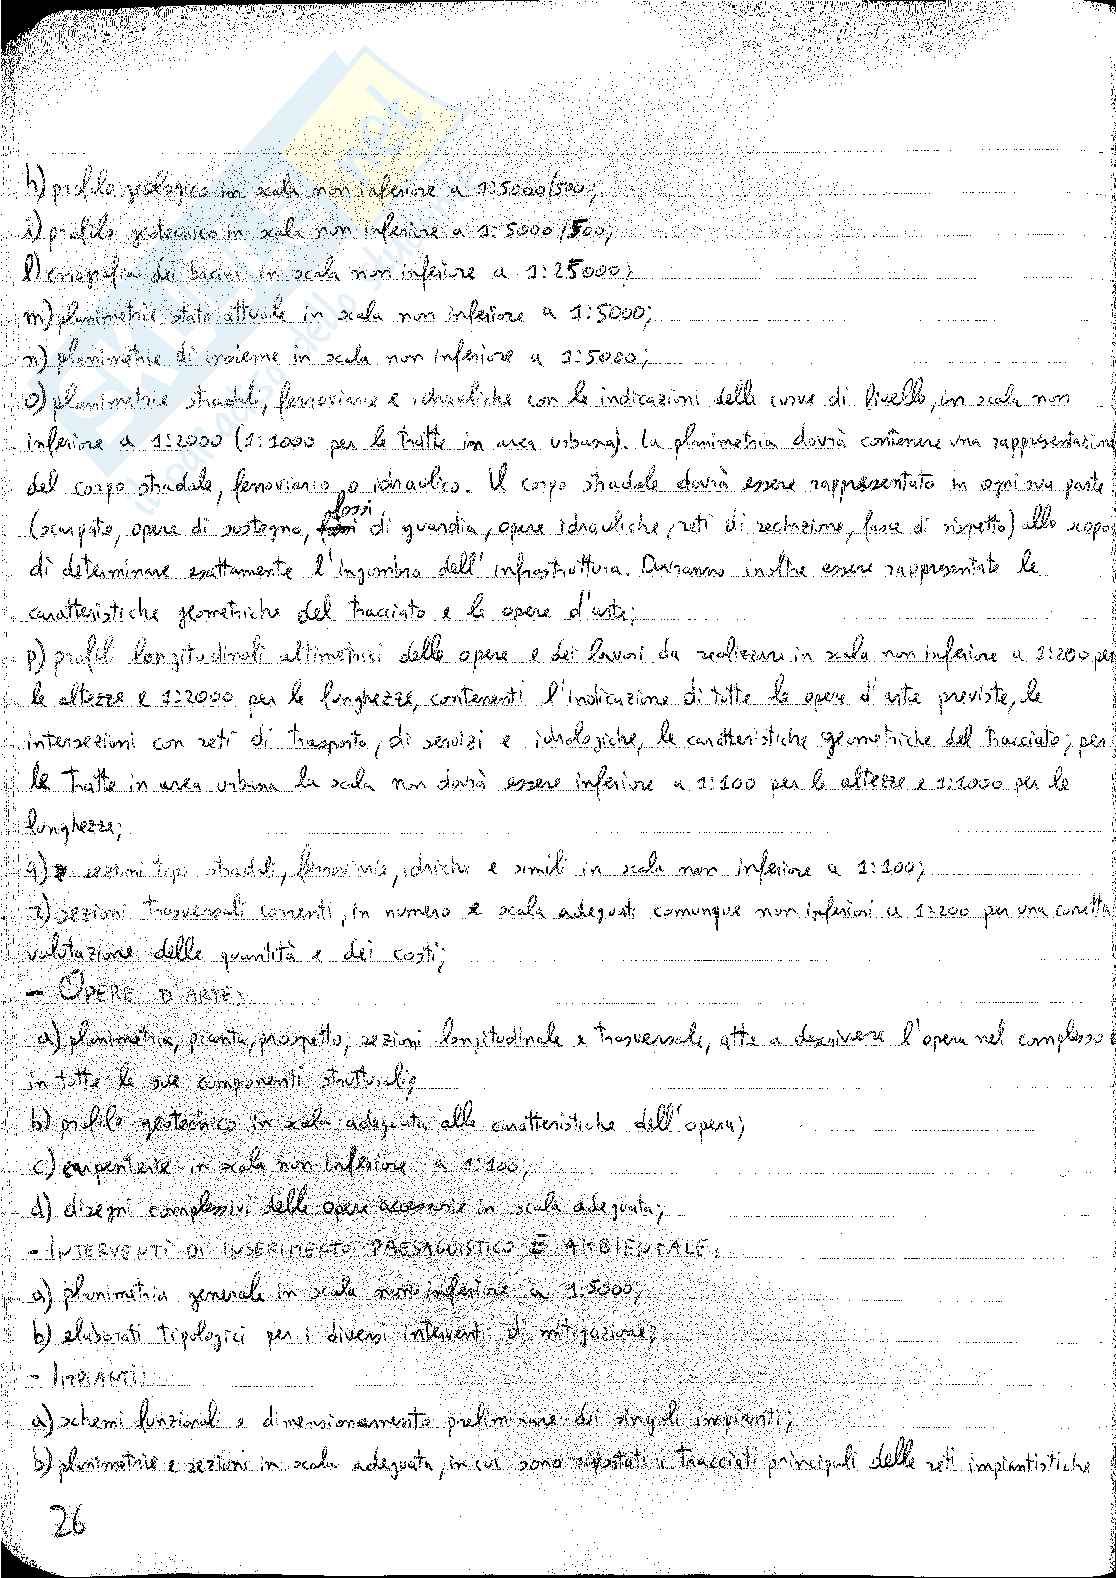 h) profilo geologico in scala non inferiore a 1:5000/500;
i) profilo geotecnico in scala non inferiore a 1:5000/500;
l) corografia dei bacini in scala non inferiore a 1:25000;
m) planimetrie stato attuale in scala non inferiore a 1:5000;
n) planimetrie di insieme in scala non inferiore a 1:5000;
o) planimetrie stradali, ferroviarie e idrauliche con le indicazioni delle curve di livello, in scala non
inferiore a 1:2000 (1:1000 per le tratte in area urbana). La planimetria dovrà contenere una rappresentazione
del corpo stradale, ferroviario o idraulico. Il corpo stradale dovrà essere rappresentato in ogni sua parte
(scarpate, opere di sostegno, fossi di guardia, opere idrauliche, reti di recinzione, fasce di rispetto) allo scopo
di determinare esattamente l'ingombro dell'infrastruttura. Dovranno inoltre essere rappresentate le
caratteristiche geometriche del tracciato e le opere d'arte;
p) profili longitudinali altimetrici delle opere e dei lavori da realizzare in scala non inferiore a 1:200 per
le altezze e 1:2000 per le lunghezze, contenenti l'indicazione di tutte le opere d'arte previste, le
intersezioni con reti di trasporto, di servizi e idrologiche, le caratteristiche geometriche del tracciato; per
le tratte in area urbana la scala non dovrà essere inferiore a 1:100 per le altezze e 1:1000 per le
lunghezze;
q) sezioni tipo stradali, ferroviarie, idriche e simili in scala non inferiore a 1:100;
r) sezioni trasversali correnti, in numero e scala adeguati comunque non inferiori a 1:200 per una corretta
valutazione delle quantità e dei costi;
- OPERE D'ARTE:
a) planimetria, pianta, prospetto, sezioni longitudinale e trasversale, atte a descrivere l'opera nel complesso e
in tutte le sue componenti strutturali;
b) profilo geotecnico in scala adeguata alle caratteristiche dell'opera;
c) carpenterie in scala non inferiore a 1:100;
d) disegni complessivi delle opere accessorie in scala adeguata;
- INTERVENTI DI INSERIMENTO PAESAGGISTICO E AMBIENTALE:
a) planimetria generale in scala non inferiore a 1:5000;
b) elaborati tipologici per i diversi interventi di mitigazione;
- IMPIANTI:
a) schemi funzionali e dimensionamento preliminare dei singoli impianti;
b) planimetrie e sezioni in scala adeguata, in cui sono riportati i tracciati principali delle reti impiantistiche
26